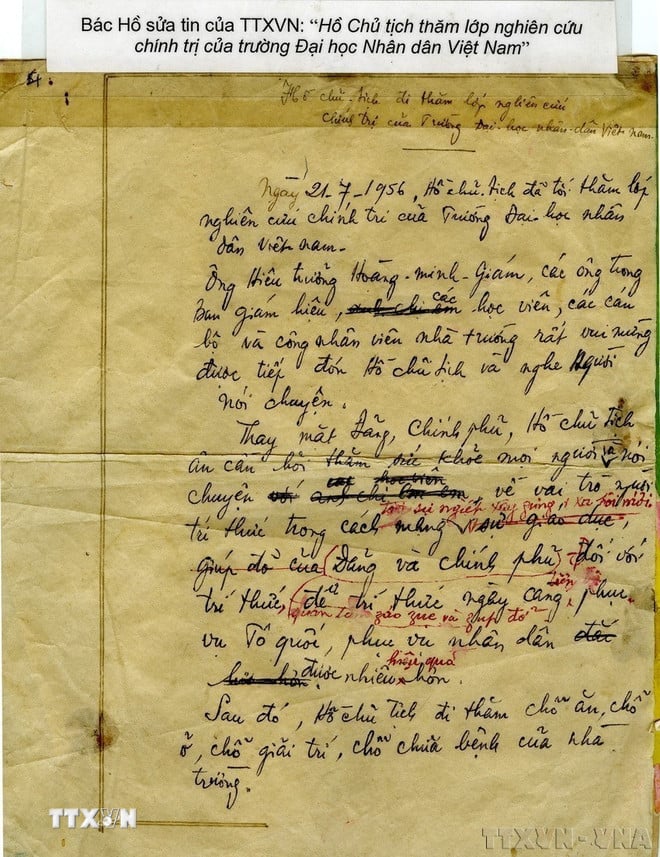 Bác Hồ sửa tin của TTXVN: “Hồ Chủ tịch thăm lớp nghiên cứu
chính trị của trường Đại học Nhân dân Việt Nam”
Hồ chủ-tịch đi thăm lớp nghiên cứu
chính trị của Trường Đại-học nhân-dân Việt-nam.
Ngày 21-7-1956, Hồ chủ-tịch đã tới thăm lớp
nghiên cứu chính trị của Trường Đại-học nhân
dân Việt-nam.
Ông Hiệu trưởng Hoàng-minh-Giám, các ông trong
Ban giám hiệu, anh chị em các học viên, các cán
bộ và công nhân viên nhà trường rất vui mừng
được tiếp đón Hồ chủ tịch và nghe Người
nói chuyện.
Thay mặt Đảng, Chính phủ, Hồ chủ tịch
ân cần hỏi thăm sức khỏe mọi người và nói
các học viên
chuyện với anh chị em về vai trò người
trí thức trong cách mạng, sự giáo dục,
giúp đỡ của Đảng và chính phủ đối với
trí thức, để trí thức ngày càng tiến phục
quan tâm záo zục và zúp đỡ
vụ Tổ quốc, phục vụ nhân dân
hiệu quả
được nhiều hơn.
Sau đó, Hồ chủ tịch đi thăm chỗ ăn, chỗ
ở, chỗ giải trí, chỗ chữa bệnh của nhà
trường.
TTXVN
TTXVN-VNA